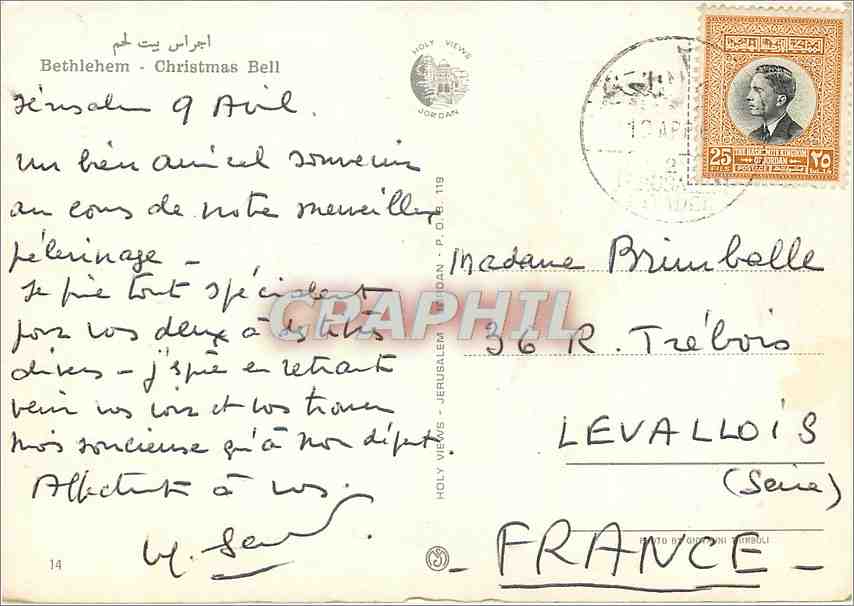 اجراس بيت لحم
Bethlehem - Christmas Bell
HOLY VIEWS
JORDAN
Jérusalem 9 Avril.
un bien amical souvenir
au cours de notre merveilleux
pèlerinage -
Je prie tout spécialement
pour vos deux à des titres
divers - j'espère en rentrant
venir vous voir et vous trouver
moins soucieuse qu'à mon départ.
Affectueusement à vous.
HOLY VIEWS - JERUSALEM - JORDAN - P.O.B. 119
CPAPHIL
25 FILS
THE HASHEMITE KINGDOM
OF JORDAN
٢٥
Madame Brimbelle
36 R. Trébois
LEVALLOIS
(Seine)
- FRANCE -
PHOTO BY GIOVANNI TRIMBOLI
14